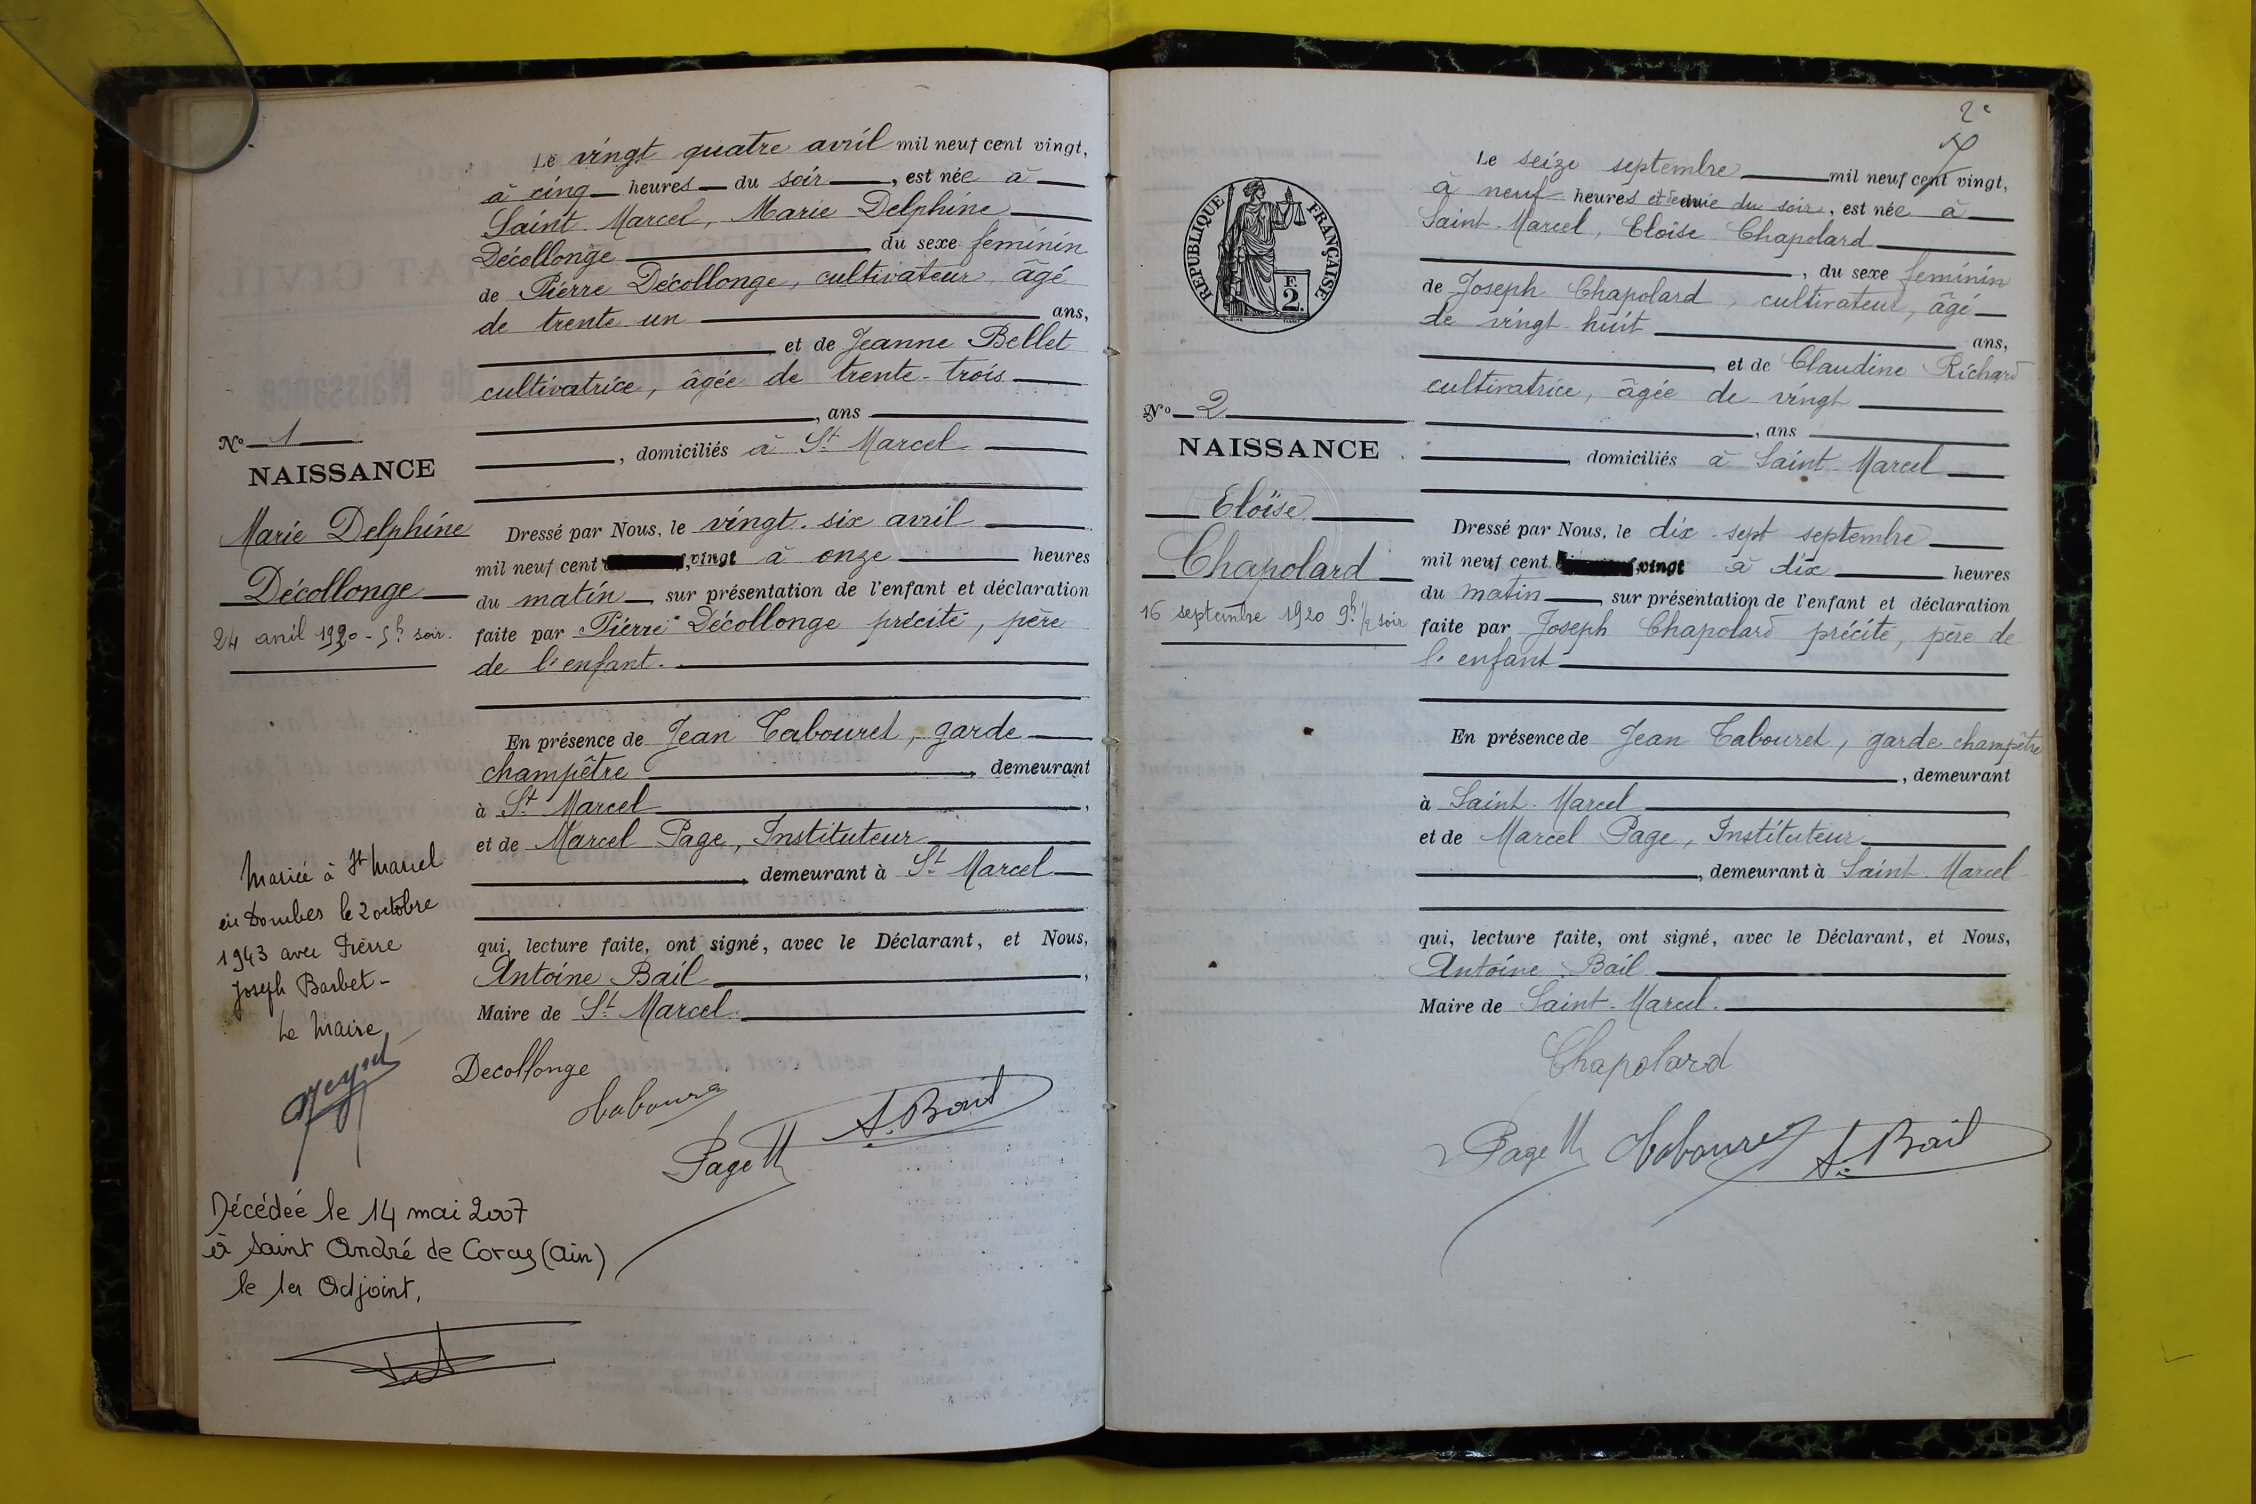 Le vingt quatre avril mil neuf cent vingt,
à cinq heures du soir, est née à
Saint-Marcel, Marie Delphine
Décollonge du sexe féminin
de Pierre Décollonge, cultivateur, âgé
de trente un ans,
et de Jeanne Bellet
cultivatrice, âgée de trente-trois
, ans
, domiciliés à St. Marcel
No 1
NAISSANCE
Marie Delphine
Décollonge
24 avril 1920 - 5h soir.
Dressé par Nous, le vingt-six avril
mil neuf cent vingt à onze heures
du matin, sur présentation de l'enfant et déclaration
faite par Pierre Décollonge précité, père
de l'enfant.
En présence de Jean Tabouret, garde
champêtre, demeurant
à St. Marcel,
et de Marcel Page, Instituteur
, demeurant à St. Marcel
qui, lecture faite, ont signé, avec le Déclarant, et Nous,
Antoine Bail,
Maire de St. Marcel.
Decollonge
Tabouret
Page M
A. Bail
Mariée à St Marcel
en Dombes le 2 octobre
1943 avec Pierre
Joseph Barbet -
Le Maire
Décédée le 14 mai 2007
à Saint André de Corcy (Ain)
le 1er Adjoint,
2e
Le seize septembre mil neuf cent vingt,
à neuf heures et demie du soir, est née à
Saint-Marcel, Eloïse Chapolard
, du sexe féminin
de Joseph Chapolard, cultivateur, âgé
de vingt-huit ans,
et de Claudine Richard
cultivatrice, âgée de vingt
, ans
, domiciliés à Saint-Marcel
RÉPUBLIQUE FRANÇAISE
F.
2
No 2
NAISSANCE
Eloïse
Chapolard
16 septembre 1920 9h 1/2 soir
Dressé par Nous, le dix-sept septembre
mil neuf cent vingt à dix heures
du matin, sur présentation de l'enfant et déclaration
faite par Joseph Chapolard précité, père de
l'enfant
En présence de Jean Tabouret, garde champêtre
, demeurant
à Saint-Marcel,
et de Marcel Page, Instituteur
, demeurant à Saint-Marcel
qui, lecture faite, ont signé, avec le Déclarant, et Nous,
Antoine Bail
Maire de Saint-Marcel.
Chapolard
Page M Tabouret A. Bail